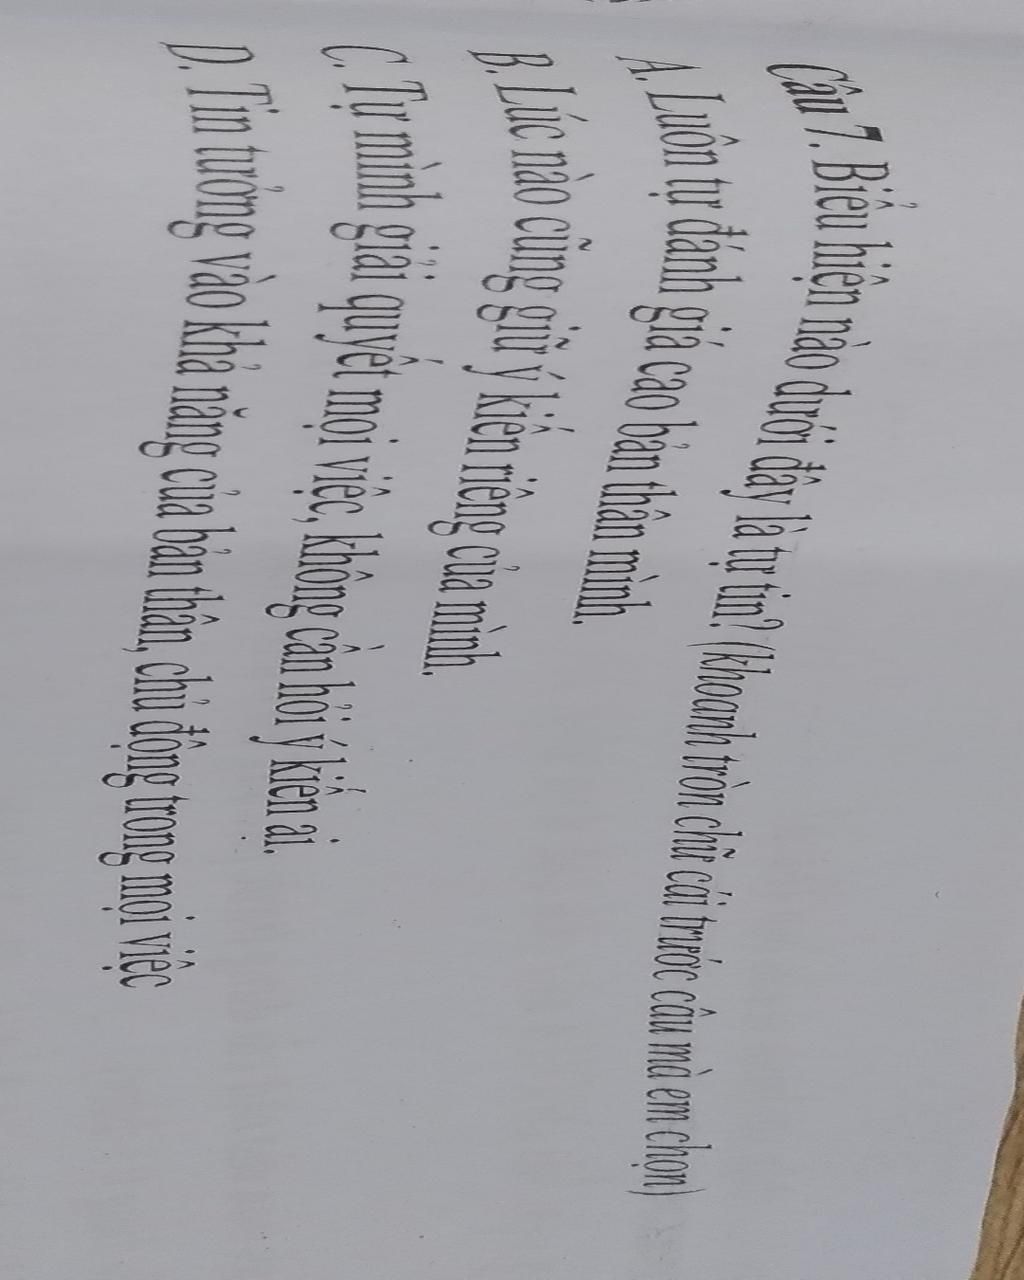 Câu 7. Biểu hiện nào dưới đây là tự tin? (khoanh tròn chữ cái trước câu mà em chọn)
A. Luôn tự đánh giá cao bản thân mình.
B. Lúc nào cũng giữ ý kiến riêng của mình.
C. Tự mình giải quyết mọi việc, không cần hỏi ý kiến ai.
D. Tin tưởng vào khả năng của bản thân, chủ động trong mọi việc